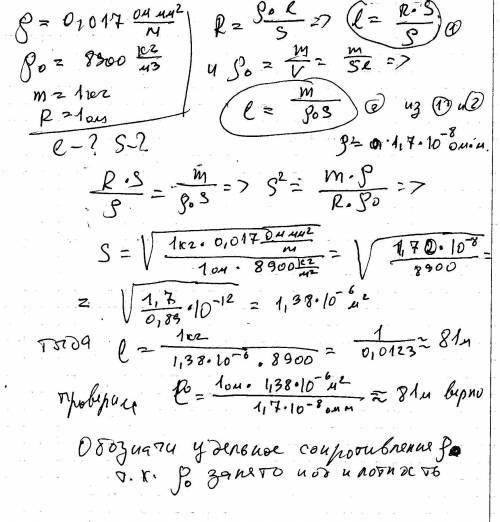 ρ = 0,017 ом мм²/м
R = ρ₀ l/S => l = R·S/ρ ①
ρ₀ = 8900 кг/м3
и ρ₀ = m/V = m/Sl =>
m = 1кг
R = 1ом
l = m/ρ₀S ② из ① и ②
l - ? S - ?
ρ = 1,7·10⁻⁸ ом·м.
R·S/ρ = m/ρ₀S => S² = m·ρ/R·ρ₀ =>
S = √(1кг · 0,017 ом мм²/м / 1ом · 8900 кг/м³) = √(1,7·10⁻⁸/8900) =
= √(1,7/0,89 · 10⁻¹²) = 1,38·10⁻⁶ м²
тогда l = 1кг/1,38·10⁻⁶ · 8900 = 1/0,0123 ≈ 81м
проверим l = 1ом · 1,38·10⁻⁶ м²/1,7·10⁻⁸ ом м ≈ 81м верно
Обозначил удельное сопротивление ρ
т.к. ρ₀ занято под плотность